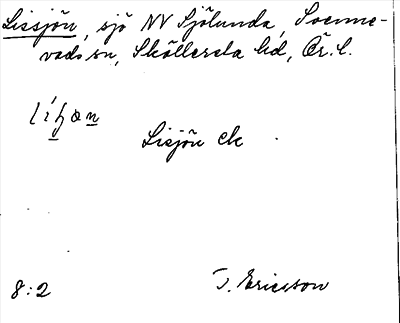 Lissjön, sjö NV Sjölunda, Svenne-
vads sn, Sköllersta hd, Ör. l.
Lisjön ek
8:2
J. Ericsson